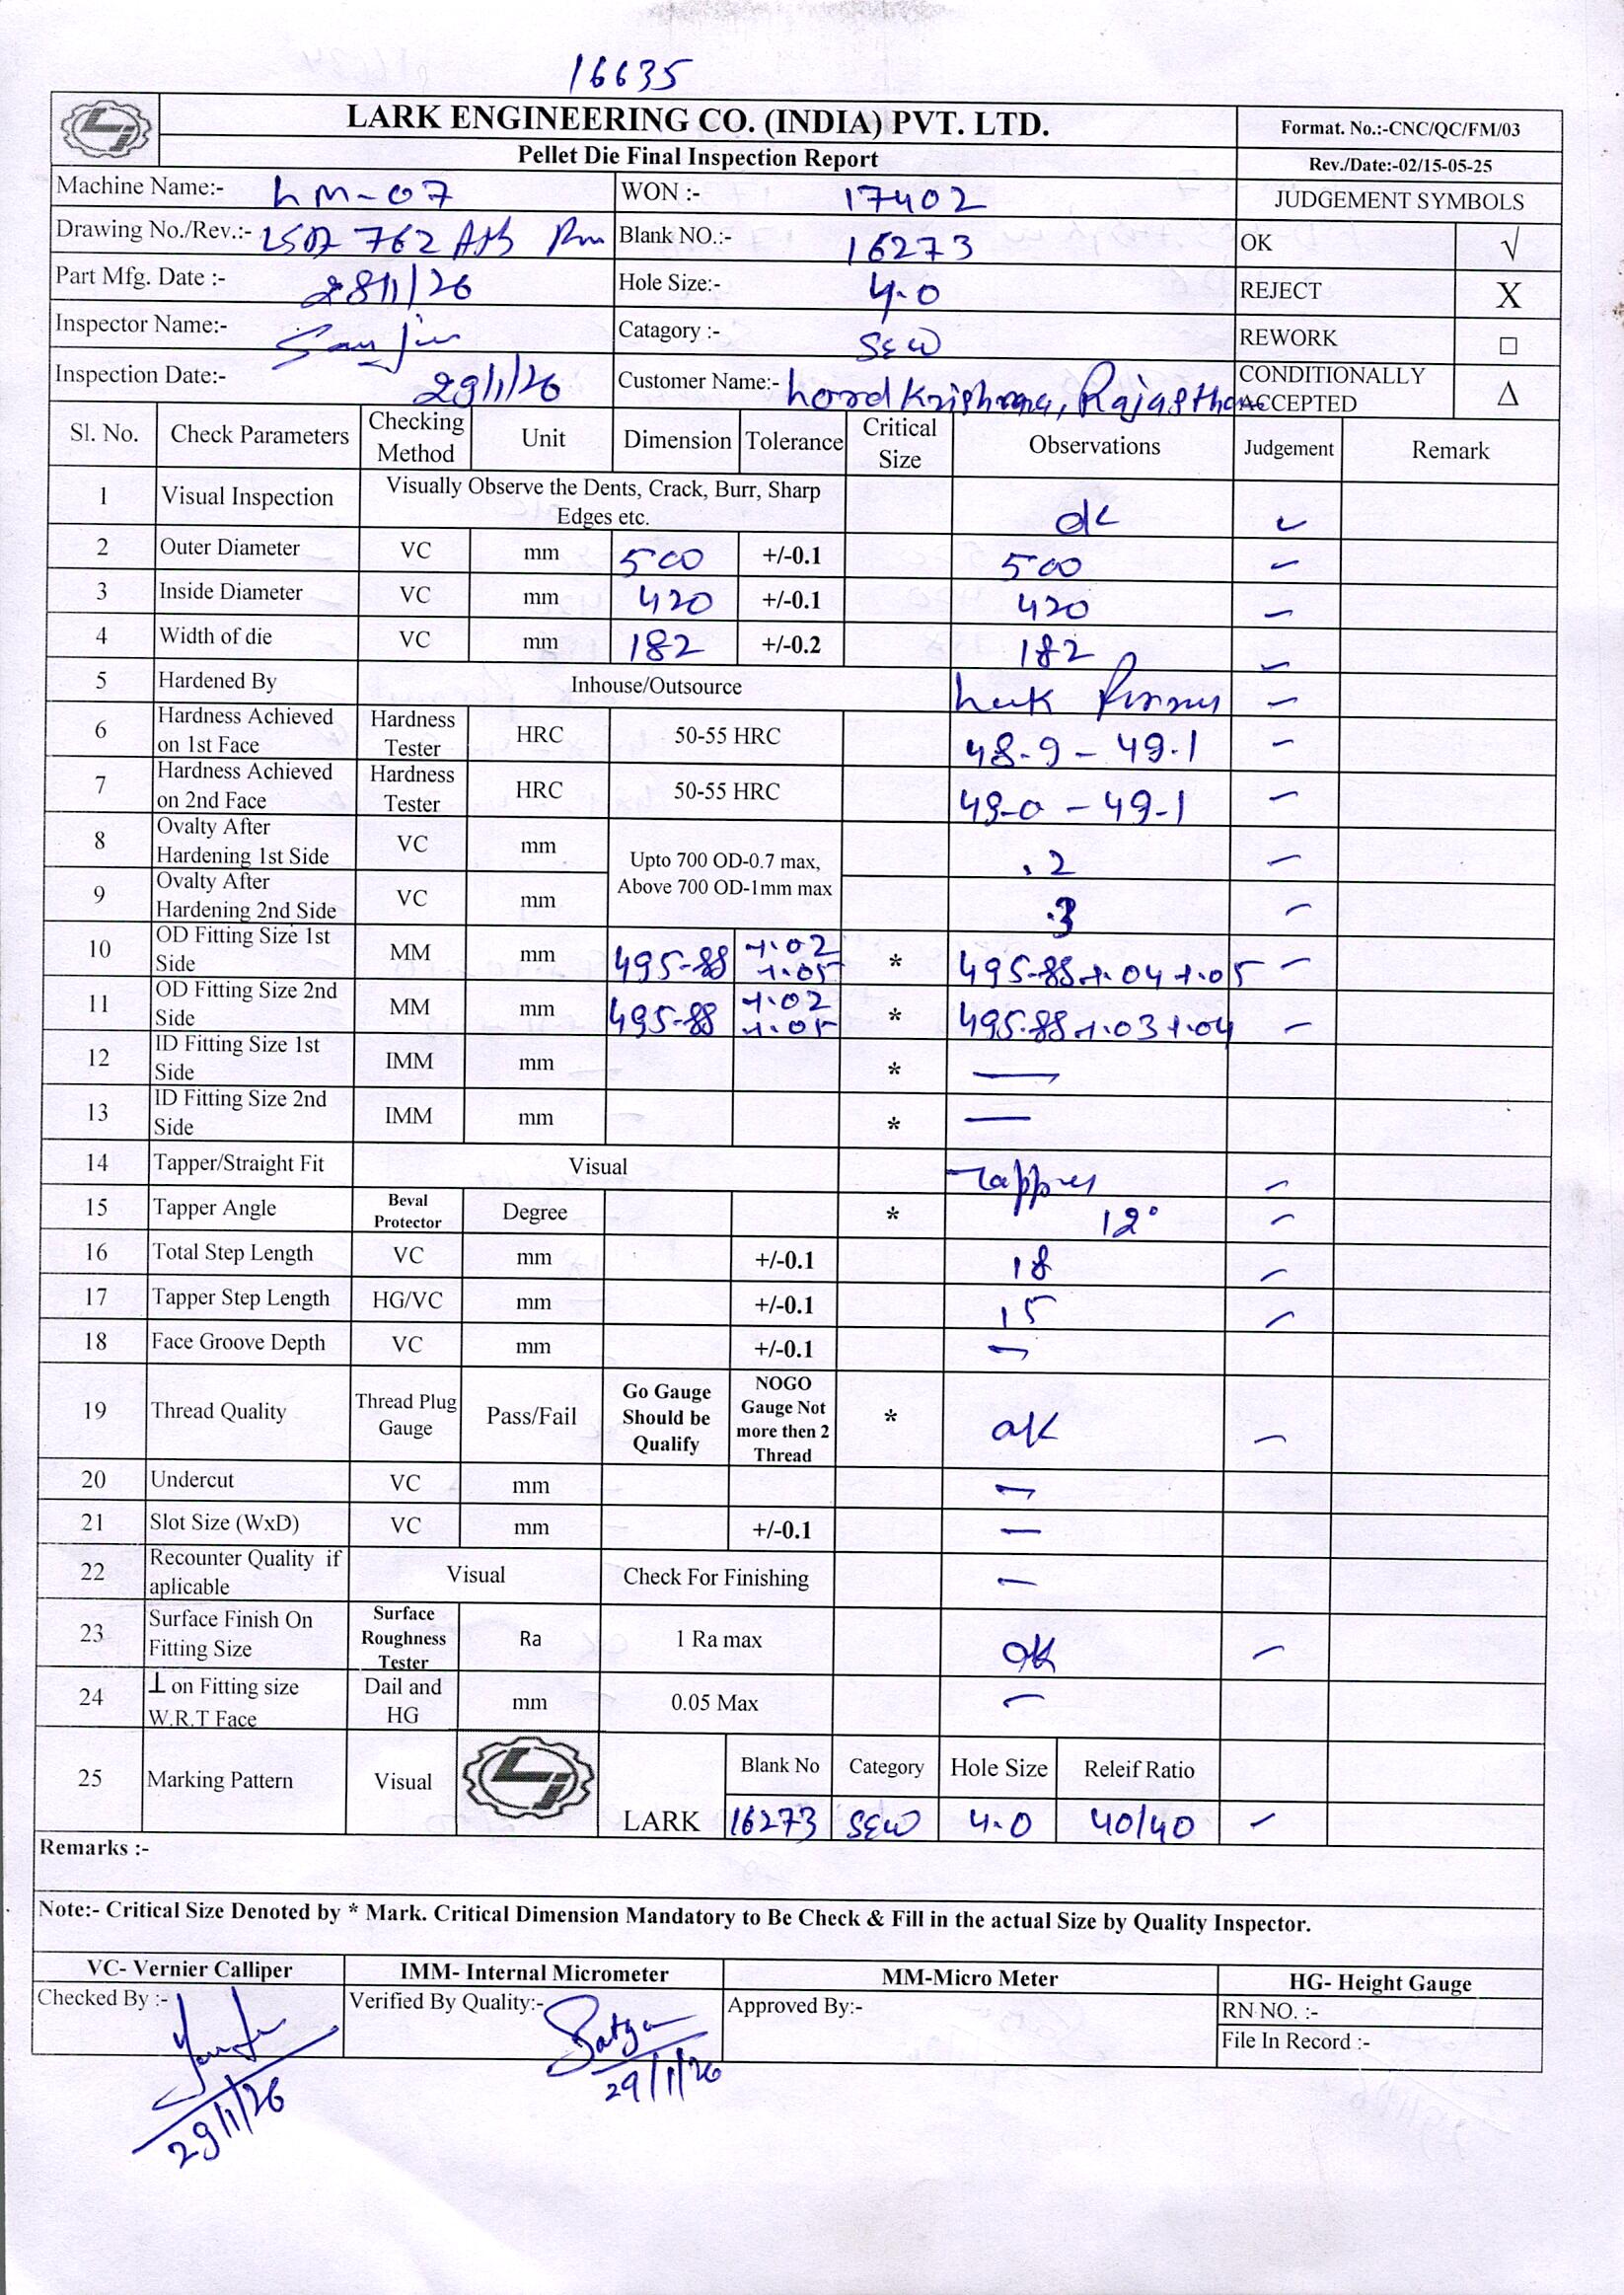 16635
LARK ENGINEERING CO. (INDIA) PVT. LTD. Format. No.:-CNC/QC/FM/03
Pellet Die Final Inspection Report Rev./Date:-02/15-05-25
Machine Name:- LM-07 WON :- 17402 JUDGEMENT SYMBOLS
Drawing No./Rev.:- 762 Blank NO.:- 16273 OK √
Part Mfg. Date :- 28/1/26 Hole Size:- 4.0 REJECT X
Inspector Name:- Catagory :- SEW REWORK □
Inspection Date:- 29/1/26 Customer Name:- Lord Krishna, Rajasthan CONDITIONALLY ACCEPTED Δ
Sl. No. Check Parameters Checking Method Unit Dimension Tolerance Critical Size Observations Judgement Remark
1 Visual Inspection Visually Observe the Dents, Crack, Burr, Sharp Edges etc. ok ✓
2 Outer Diameter VC mm 500 +/-0.1 500 ✓
3 Inside Diameter VC mm 420 +/-0.1 420 ✓
4 Width of die VC mm 182 +/-0.2 182 ✓
5 Hardened By Inhouse/Outsource ✓
6 Hardness Achieved on 1st Face Hardness Tester HRC 50-55 HRC 48.9 - 49.1 ✓
7 Hardness Achieved on 2nd Face Hardness Tester HRC 50-55 HRC 49.0 - 49.1 ✓
8 Ovalty After Hardening 1st Side VC mm Upto 700 OD-0.7 max, Above 700 OD-1mm max .2 ✓
9 Ovalty After Hardening 2nd Side VC mm .3 ✓
10 OD Fitting Size 1st Side MM mm 495.88 +.02 +.05 * 495.88+.04+.05 ✓
11 OD Fitting Size 2nd Side MM mm 495.88 +.02 +.05 * 495.88+.03+.04 ✓
12 ID Fitting Size 1st Side IMM mm * —
13 ID Fitting Size 2nd Side IMM mm * —
14 Tapper/Straight Fit Visual Tapper ✓
15 Tapper Angle Beval Protector Degree * 12° ✓
16 Total Step Length VC mm +/-0.1 18 ✓
17 Tapper Step Length HG/VC mm +/-0.1 15 ✓
18 Face Groove Depth VC mm +/-0.1 —
19 Thread Quality Thread Plug Gauge Pass/Fail Go Gauge Should be Qualify NOGO Gauge Not more then 2 Thread * ok ✓
20 Undercut VC mm —
21 Slot Size (WxD) VC mm +/-0.1 —
22 Recounter Quality if aplicable Visual Check For Finishing —
23 Surface Finish On Fitting Size Surface Roughness Tester Ra 1 Ra max OK ✓
24 ⊥ on Fitting size W.R.T Face Dail and HG mm 0.05 Max —
25 Marking Pattern Visual LARK Blank No Category Hole Size Releif Ratio
16273 SEW 4.0 40/40 ✓
Remarks :-
Note:- Critical Size Denoted by * Mark. Critical Dimension Mandatory to Be Check & Fill in the actual Size by Quality Inspector.
VC- Vernier Calliper IMM- Internal Micrometer MM-Micro Meter HG- Height Gauge
Checked By :- Verified By Quality:- Approved By:- RN NO. :-
File In Record :-
29/1/26 29/1/26